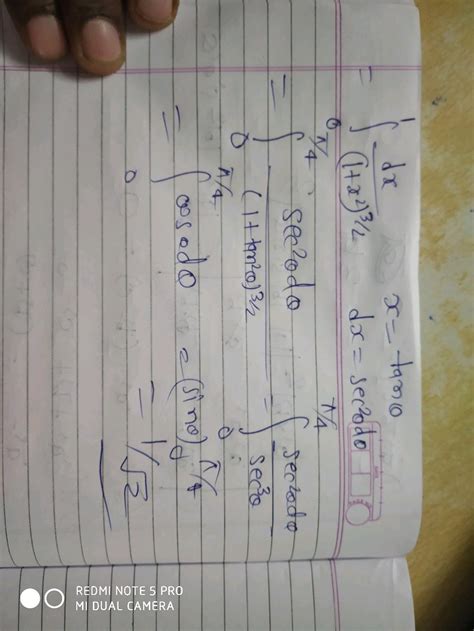 = ∫₀¹ dx/(1+x²)^3/2    x = tanθ
dx = sec²θdθ
= ∫₀^π/4 sec²θdθ/(1+tan²θ)^3/2 = ∫₀^π/4 sec²θdθ/sec³θ
= ∫₀^π/4 cosθdθ = (sinθ)₀^π/4
= 1/√2
REDMI NOTE 5 PRO
MI DUAL CAMERA